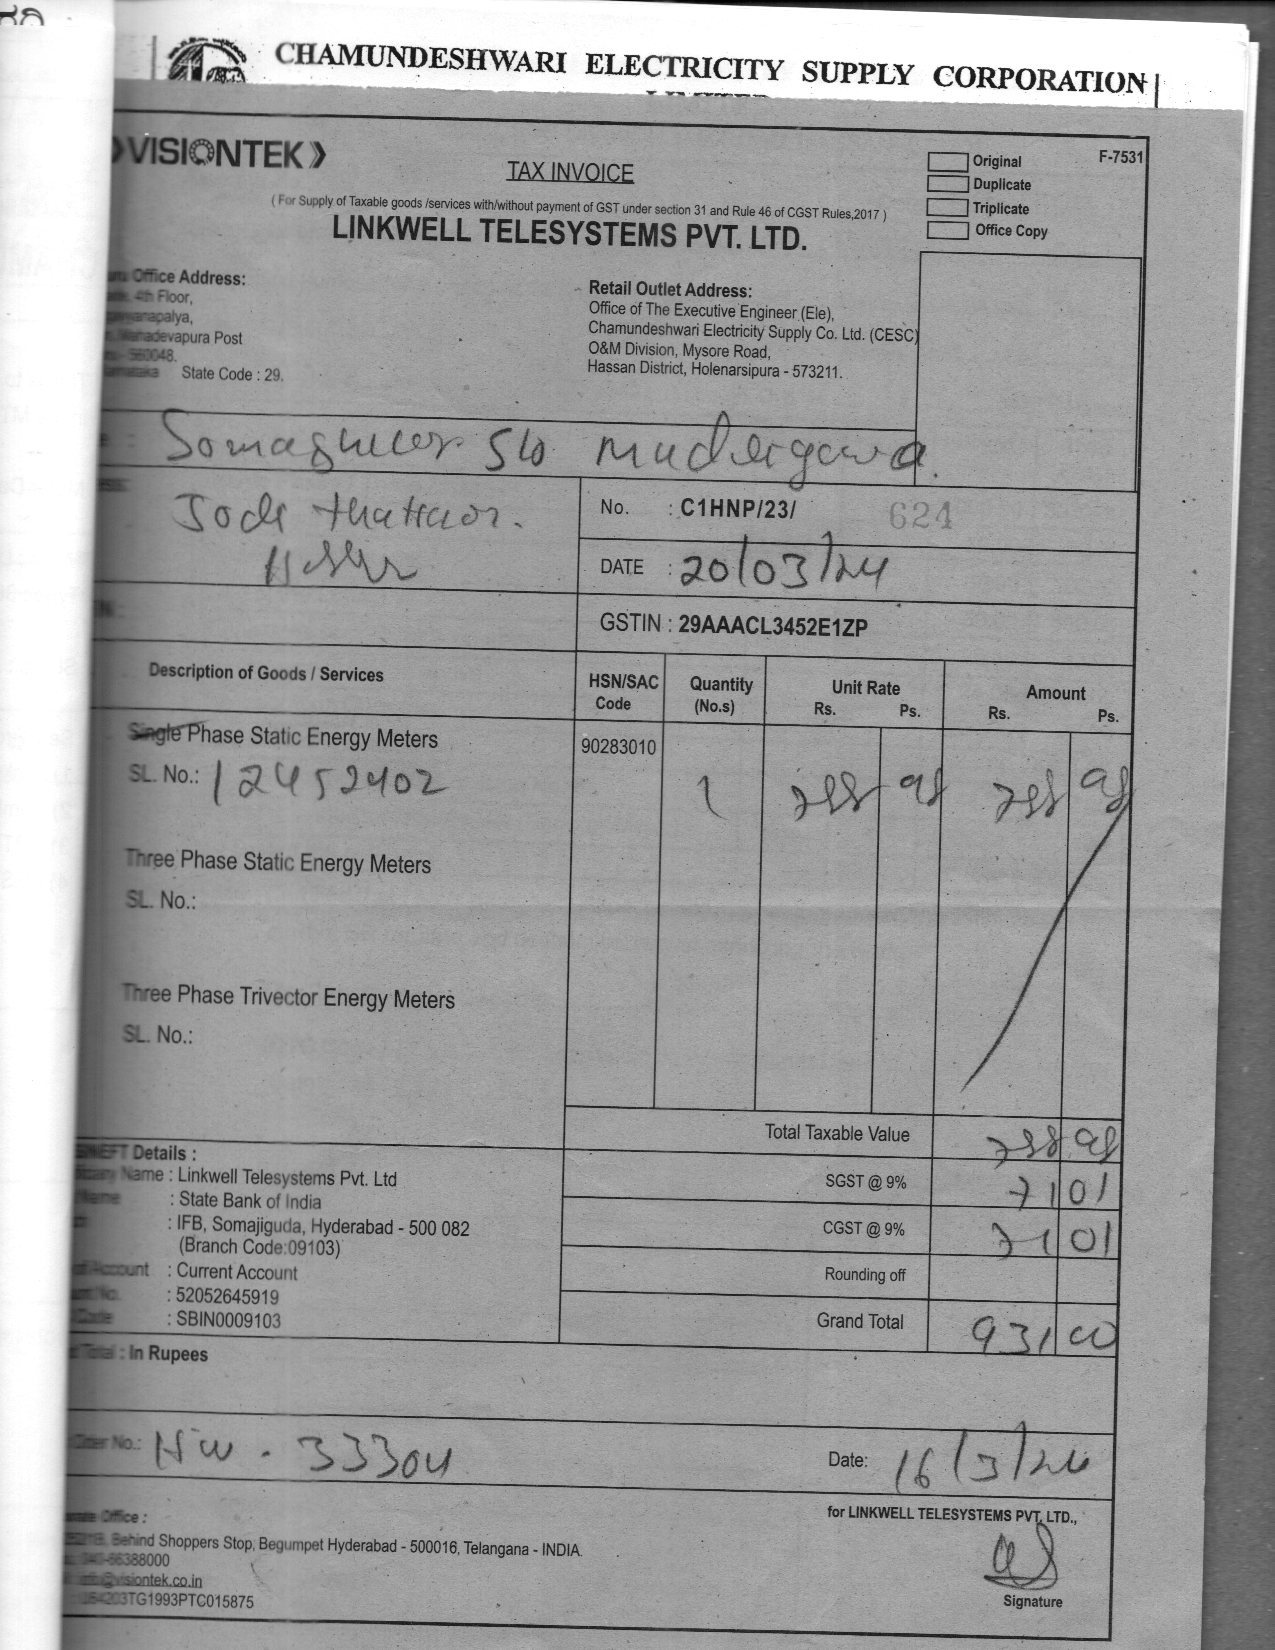 CHAMUNDESHWARI ELECTRICITY SUPPLY CORPORATION
VISIONTEK
TAX INVOICE
(For Supply of Taxable goods /services with/without payment of GST under section 31 and Rule 46 of CGST Rules,2017)
LINKWELL TELESYSTEMS PVT. LTD.
Original
Duplicate
Triplicate
Office Copy
F-7531
Office Address:
4th Floor,
Mahadevapura Post
560048.
State Code : 29.
Retail Outlet Address:
Office of The Executive Engineer (Ele),
Chamundeshwari Electricity Supply Co. Ltd. (CESC)
O&M Division, Mysore Road,
Hassan District, Holenarsipura - 573211.
S/o
No. : C1HNP/23/ 624
DATE : 20/03/24
GSTIN : 29AAACL3452E1ZP
Description of Goods / Services
HSN/SAC Code
Quantity (No.s)
Unit Rate Rs. Ps.
Amount Rs. Ps.
Single Phase Static Energy Meters 90283010
SL. No.: 12452402 1 788 98 788 98
Three Phase Static Energy Meters
SL. No.:
Three Phase Trivector Energy Meters
SL. No.:
Total Taxable Value 788 98
SGST @ 9% 71 01
CGST @ 9% 71 01
Rounding off
Grand Total 931 00
Details :
Name : Linkwell Telesystems Pvt. Ltd
Name : State Bank of India
: IFB, Somajiguda, Hyderabad - 500 082
(Branch Code:09103)
Account : Current Account
: 52052645919
Code : SBIN0009103
Total : In Rupees
No.: HW - 33304
Date: 16/3/24
for LINKWELL TELESYSTEMS PVT. LTD.,
Signature
Office :
Behind Shoppers Stop, Begumpet Hyderabad - 500016, Telangana - INDIA.
040-66388000
info@visiontek.co.in
TG1993PTC015875